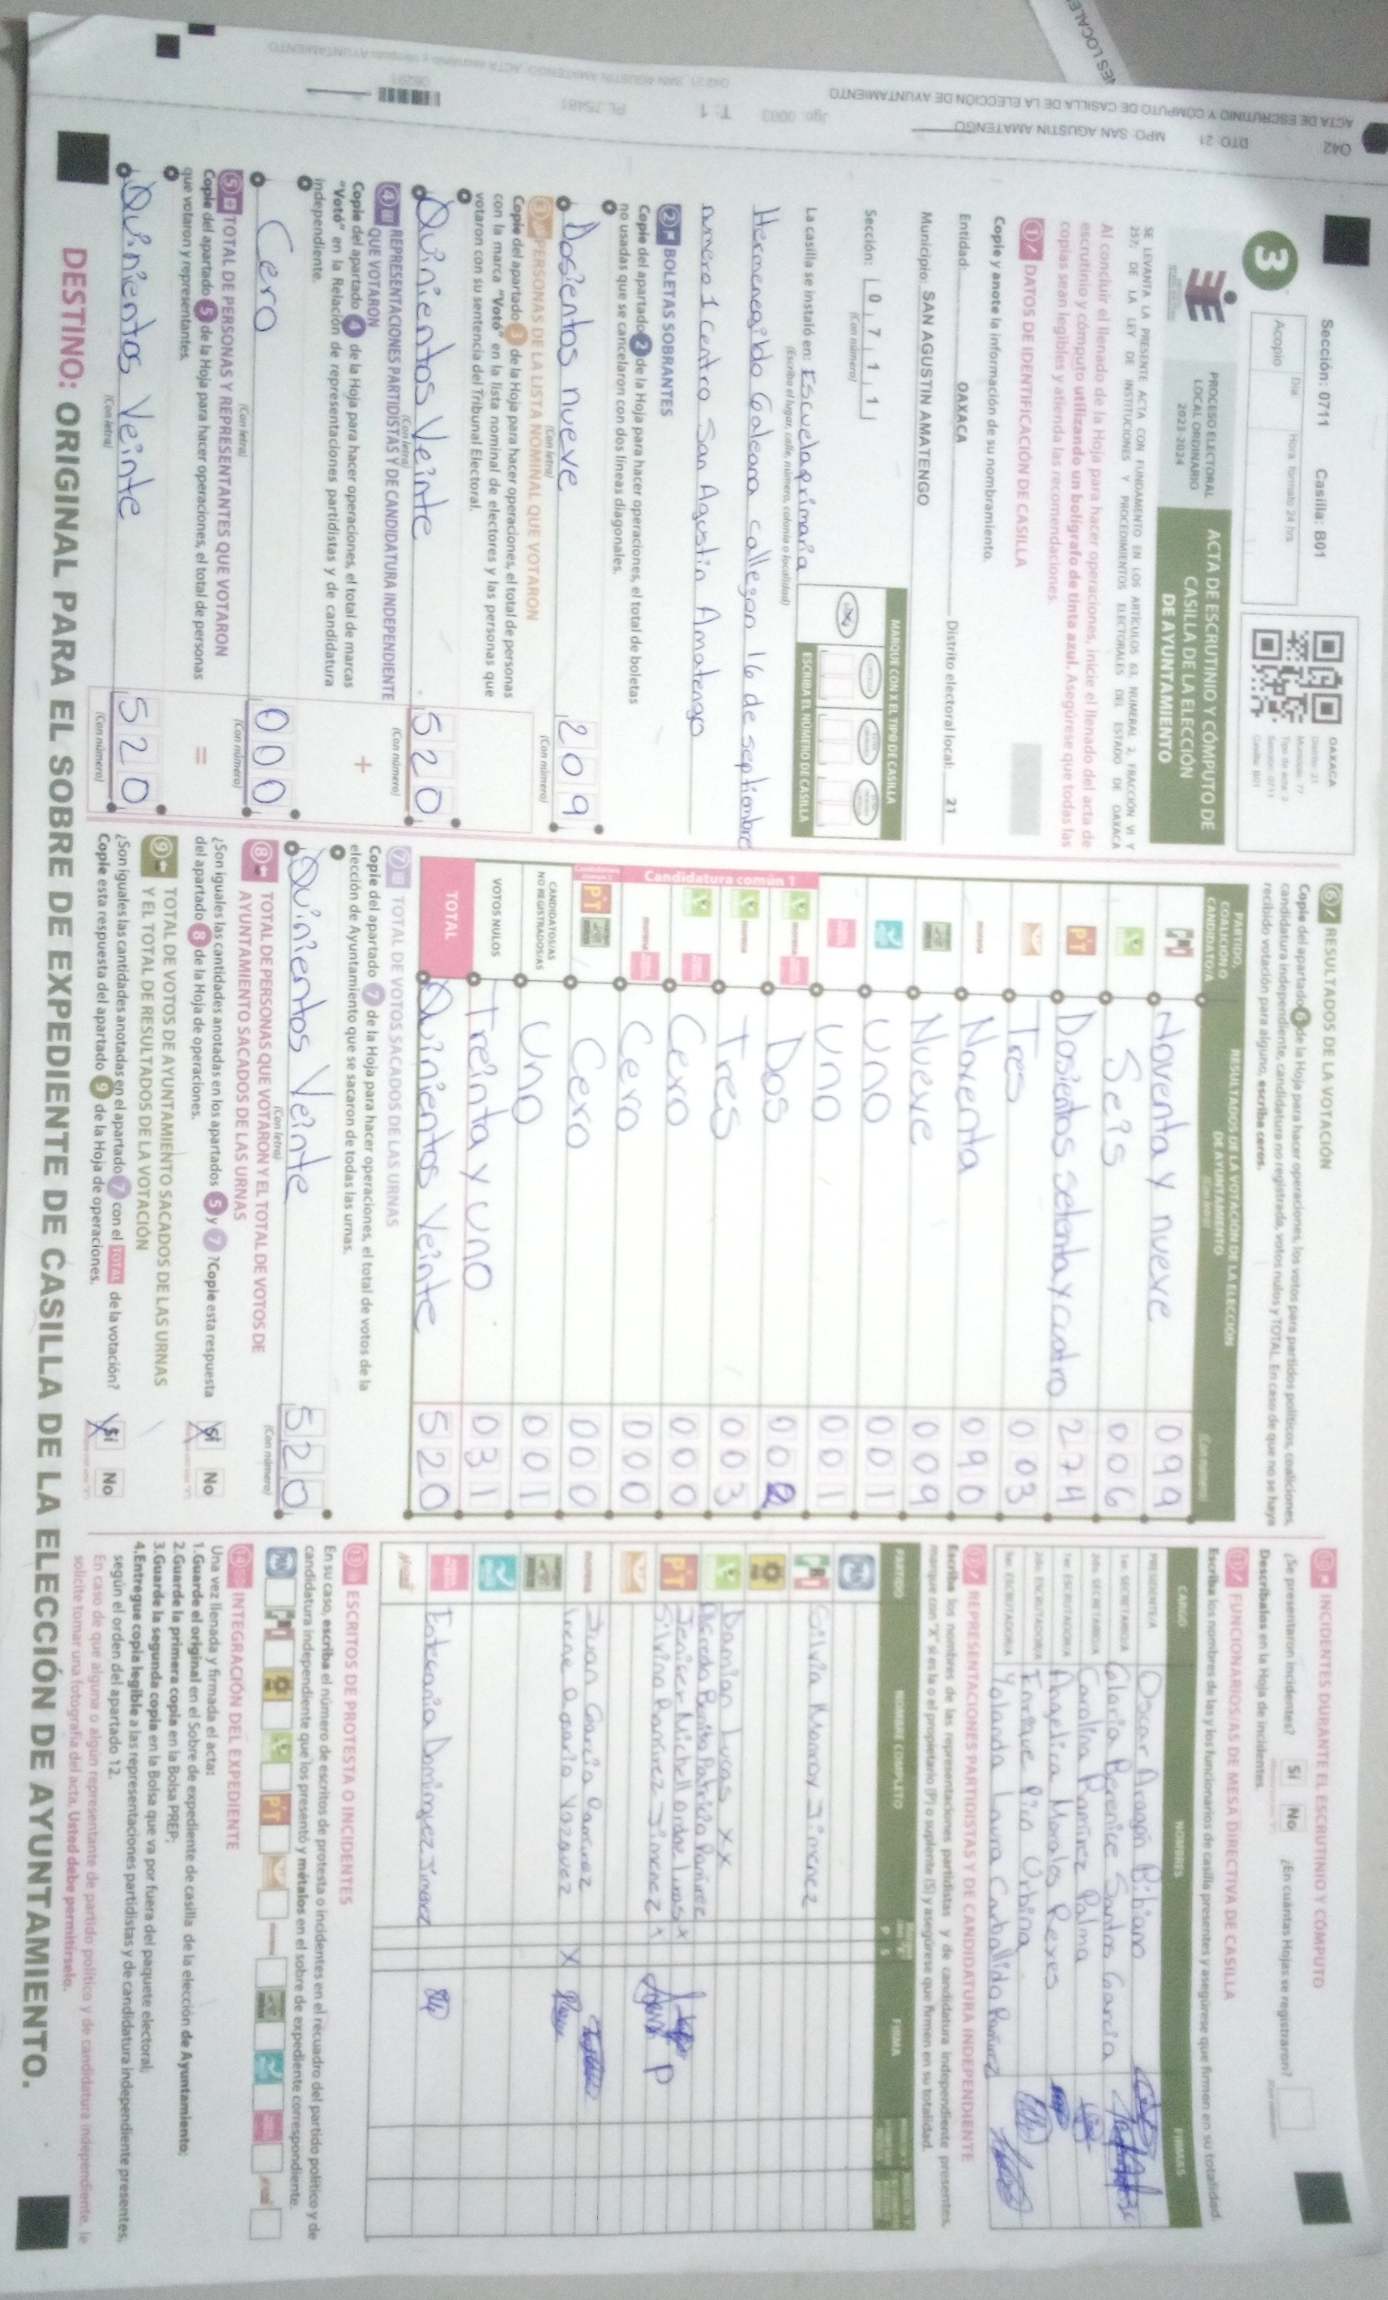 Sección: 0711 Casilla: B01
OAXACA
3
Acopio
Día
Hora formato 24 hrs
PROCESO ELECTORAL
LOCAL ORDINARIO
2023-2024
ACTA DE ESCRUTINIO Y CÓMPUTO DE
CASILLA DE LA ELECCIÓN
DE AYUNTAMIENTO
SE LEVANTA LA PRESENTE ACTA CON FUNDAMENTO EN LOS ARTÍCULOS 63, NUMERAL 2, FRACCIÓN VI Y
257, DE LA LEY DE INSTITUCIONES Y PROCEDIMIENTOS ELECTORALES DEL ESTADO DE OAXACA
Al concluir el llenado de la Hoja para hacer operaciones, inicie el llenado del acta de
escrutinio y cómputo utilizando un bolígrafo de tinta azul. Asegúrese que todas las
copias sean legibles y atienda las recomendaciones.
1 DATOS DE IDENTIFICACIÓN DE CASILLA
Copie y anote la información de su nombramiento.
Entidad: OAXACA Distrito electoral local: 21
Municipio: SAN AGUSTIN AMATENGO
Sección: 0 7 1 1
(Con número)
MARQUE CON X EL TIPO DE CASILLA
ESCRIBA EL NÚMERO DE CASILLA
La casilla se instaló en: Escuela primaria
(Escriba el lugar, calle, número, colonia o localidad)
Hermenegildo Galeana callegon 16 de septiombre
numero 1 centro San Agustin Amatengo
2 BOLETAS SOBRANTES
Copie del apartado 2 de la Hoja para hacer operaciones, el total de boletas
no usadas que se cancelaron con dos líneas diagonales.
Dosientos nueve 209
(Con letra) (Con número)
3 PERSONAS DE LA LISTA NOMINAL QUE VOTARON
Copie del apartado 3 de la Hoja para hacer operaciones, el total de personas
con la marca "Votó" en la lista nominal de electores y las personas que
votaron con su sentencia del Tribunal Electoral.
Quinientos Veinte 520
(Con letra) (Con número)
4 REPRESENTACIONES PARTIDISTAS Y DE CANDIDATURA INDEPENDIENTE
QUE VOTARON
Copie del apartado 4 de la Hoja para hacer operaciones, el total de marcas
"Votó" en la Relación de representaciones partidistas y de candidatura
independiente.
+
Cero 000
(Con letra) (Con número)
5 TOTAL DE PERSONAS Y REPRESENTANTES QUE VOTARON
Copie del apartado 5 de la Hoja para hacer operaciones, el total de personas
que votaron y representantes.
=
Quinientos Veinte 520
(Con letra) (Con número)
6 RESULTADOS DE LA VOTACIÓN
Copie del apartado 6 de la Hoja para hacer operaciones, los votos para partidos políticos, coaliciones,
candidatura independiente, candidatura no registrada, votos nulos y TOTAL. En caso de que no se haya
recibido votación para alguno, escriba ceros.
PARTIDO,
COALICIÓN O
CANDIDATO/A
RESULTADOS DE LA VOTACIÓN DE LA ELECCIÓN
DE AYUNTAMIENTO
(Con letra) (Con número)
PRI Noventa y nueve 099
Seis 006
PT Dosientos setenta y cuatro 274
Tres 003
morena Noventa 090
Nueve 009
Uno 001
Uno 001
Candidatura común 1
Dos 002
Tres 003
Cero 000
Cero 000
PT Cero 000
CANDIDATOS/AS
NO REGISTRADOS/AS Uno 001
VOTOS NULOS Treinta y uno 031
TOTAL Quinientos Veinte 520
7 TOTAL DE VOTOS SACADOS DE LAS URNAS
Copie del apartado 7 de la Hoja para hacer operaciones, el total de votos de la
elección de Ayuntamiento que se sacaron de todas las urnas.
Quinientos Veinte 520
(Con letra) (Con número)
8 TOTAL DE PERSONAS QUE VOTARON Y EL TOTAL DE VOTOS DE
AYUNTAMIENTO SACADOS DE LAS URNAS
¿Son iguales las cantidades anotadas en los apartados 5 y 7 ?Copie esta respuesta
del apartado 8 de la Hoja de operaciones.
Sí No
9 TOTAL DE VOTOS DE AYUNTAMIENTO SACADOS DE LAS URNAS
Y EL TOTAL DE RESULTADOS DE LA VOTACIÓN
¿Son iguales las cantidades anotadas en el apartado 7 con el TOTAL de la votación?
Copie esta respuesta del apartado 9 de la Hoja de operaciones.
Sí No
10 INCIDENTES DURANTE EL ESCRUTINIO Y CÓMPUTO
¿Se presentaron incidentes? Sí No ¿En cuántas Hojas se registraron?
Descríbalos en la Hoja de incidentes.
11 FUNCIONARIOS/AS DE MESA DIRECTIVA DE CASILLA
Escriba los nombres de las y los funcionarios de casilla presentes y asegúrese que firmen en su totalidad.
CARGO NOMBRES FIRMAS
PRESIDENTE/A Oscar Aragón Bibiano
1er. SECRETARIO/A Gloria Berenice Santos Garcia
2do. SECRETARIO/A Carolina Ramirez Palma
1er. ESCRUTADOR/A Angelica Morales Reyes
2do. ESCRUTADOR/A Enrique Pio Urbina
3er. ESCRUTADOR/A Yolanda Laura Carballido Ramirez
12 REPRESENTACIONES PARTIDISTAS Y DE CANDIDATURA INDEPENDIENTE
Escriba los nombres de las representaciones partidistas y de candidatura independiente presentes,
marque con "X" si es la o el propietario (P) o suplente (S) y asegúrese que firmen en su totalidad.
PARTIDO NOMBRE COMPLETO P S FIRMA
PAN
PRI Silvia Monroy Jimenez
Damian Lucas XX
PT
Silvina Ramirez Jimenez x
morena Juan Garcia Ramirez
Irene
Estefania Dominguez Jimenez
13 ESCRITOS DE PROTESTA O INCIDENTES
En su caso, escriba el número de escritos de protesta o incidentes en el recuadro del partido político y de
candidatura independiente que los presentó y métalos en el sobre de expediente correspondiente.
14 INTEGRACIÓN DEL EXPEDIENTE
Una vez llenada y firmada el acta:
1.Guarde el original en el Sobre de expediente de casilla de la elección de Ayuntamiento;
2.Guarde la primera copia en la Bolsa PREP;
3.Guarde la segunda copia en la Bolsa que va por fuera del paquete electoral;
4.Entregue copia legible a las representaciones partidistas y de candidatura independiente presentes,
según el orden del apartado 12.
En caso de que alguna o algún representante de partido político y de candidatura independiente, le
solicite tomar una fotografía del acta, Usted debe permitírselo.
DESTINO: ORIGINAL PARA EL SOBRE DE EXPEDIENTE DE CASILLA DE LA ELECCIÓN DE AYUNTAMIENTO.
042 DTO. 21 MPO. SAN AGUSTIN AMATENGO
ACTA DE ESCRUTINIO Y CÓMPUTO DE CASILLA DE LA ELECCIÓN DE AYUNTAMIENTO